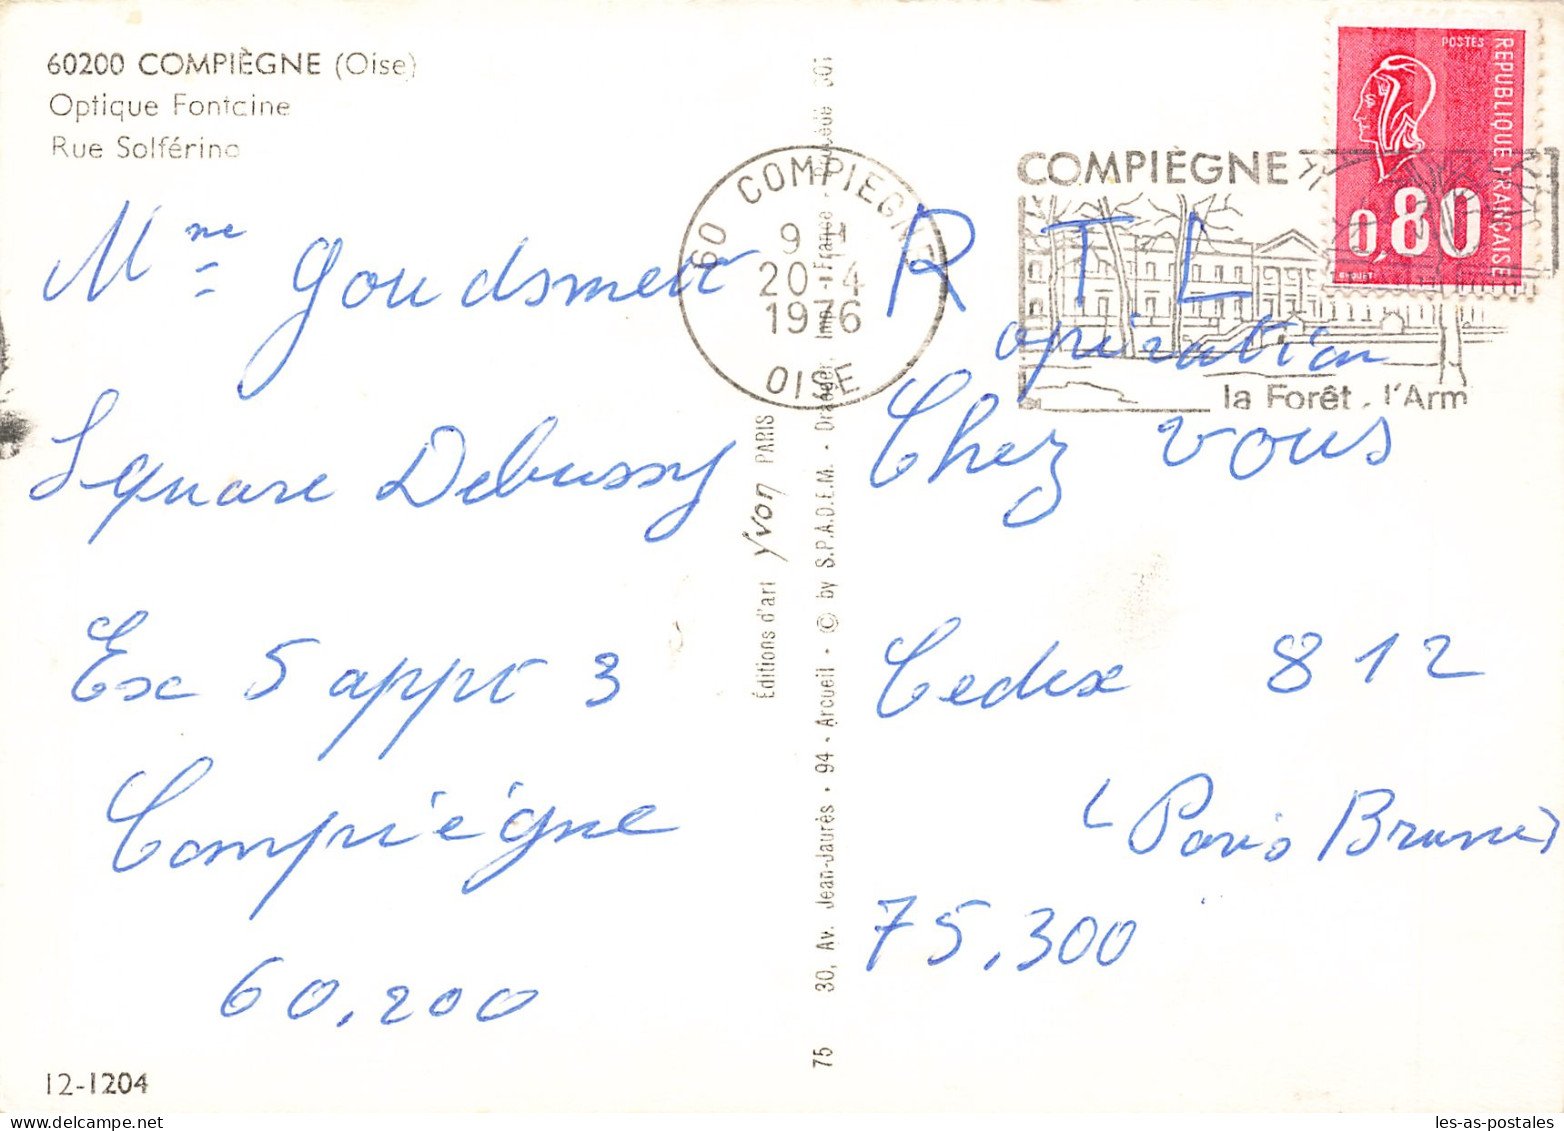 60200 COMPIÈGNE (Oise)
Optique Fontaine
Rue Solférino
Mme Goudsmett
Square Debussy
Esc 5 appt 3
Compiégne
60.200
12-1204
Éditions d'art Yvon PARIS
75 30, Av. Jean-Jaurès • 94 • Arcueil • © by S.P.A.D.E.M. • Draeger, Imp. France - Procédé 301
60 COMPIEGNE
9 H
20-4
1976
OISE
COMPIÈGNE
la Forêt, l'Arm
POSTES
REPUBLIQUE FRANÇAISE
0,80
BEQUET
R T L
opération
Chez vous
Cedex 812
Paris Brunes
75.300
les-as-postales